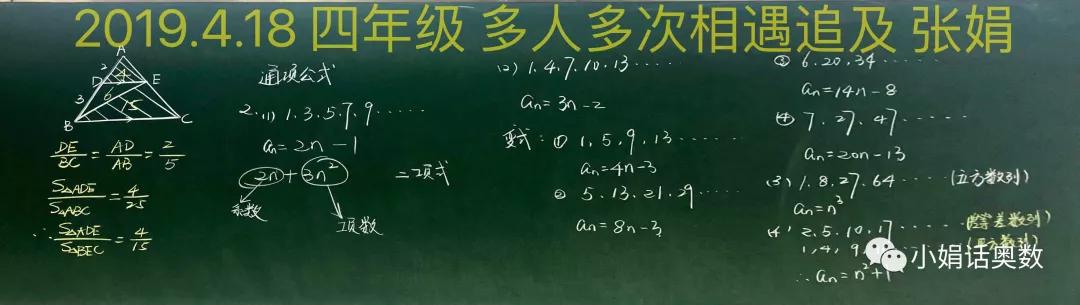 2019.4.18 四年级 多人多次相遇追及 张娟
A
2
4
D E
3 6
15
B C
DE/BC = AD/AB = 2/5
S△ADE/S△ABC = 4/25
∴ S△ADE/S△BEC = 4/15
通项公式
2. (1) 1.3.5.7.9······
an=2n-1
2n+3n² 二项式
系数 项数
(2) 1.4.7.10.13······
an=3n-2
变式: ① 1.5.9.13······
an=4n-3
② 5.13.21.29······
an=8n-3
③ 6.20.34······
an=14n-8
④ 7.27.47······
an=20n-13
(3) 1.8.27.64······ (立方数列)
an=n³
(4) 2.5.10.17······ 等差数列)
1.4.9
∴an=n²+1
小娟话奥数